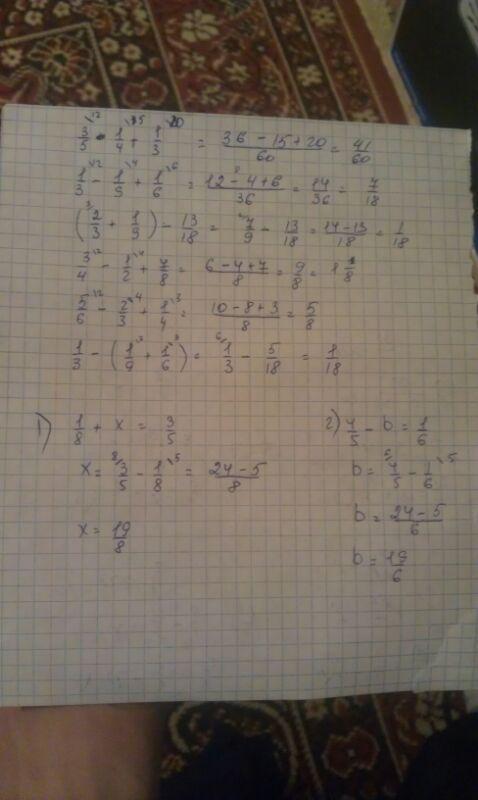 3/5 - 1/4 + 1/3 = (36 - 15 + 20)/60 = 41/60
1/3 - 1/9 + 1/6 = (12 - 4 + 6)/36 = 14/36 = 7/18
(2/3 + 1/9) - 13/18 = 7/9 - 13/18 = (14 - 13)/18 = 1/18
3/4 - 1/2 + 7/8 = (6 - 4 + 7)/8 = 9/8 = 1 1/8
5/6 - 2/3 + 1/4 = (10 - 8 + 3)/8 = 5/8
1/3 - (1/9 + 1/6) = 1/3 - 5/18 = 1/18
1) 1/8 + x = 3/5
x = 3/5 - 1/8 = (24 - 5)/8
x = 19/8
2) 4/5 - b = 1/6
b = 4/5 - 1/6
b = (24 - 5)/6
b = 19/6